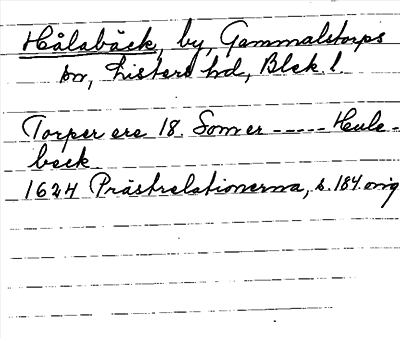 Hålabäck, by, Gammalstorps
sn, Listers hd, Blek. l.
Torper ere 18. Som er ----- Hule-
beck
1624 Prästrelationerna, s. 184. orig